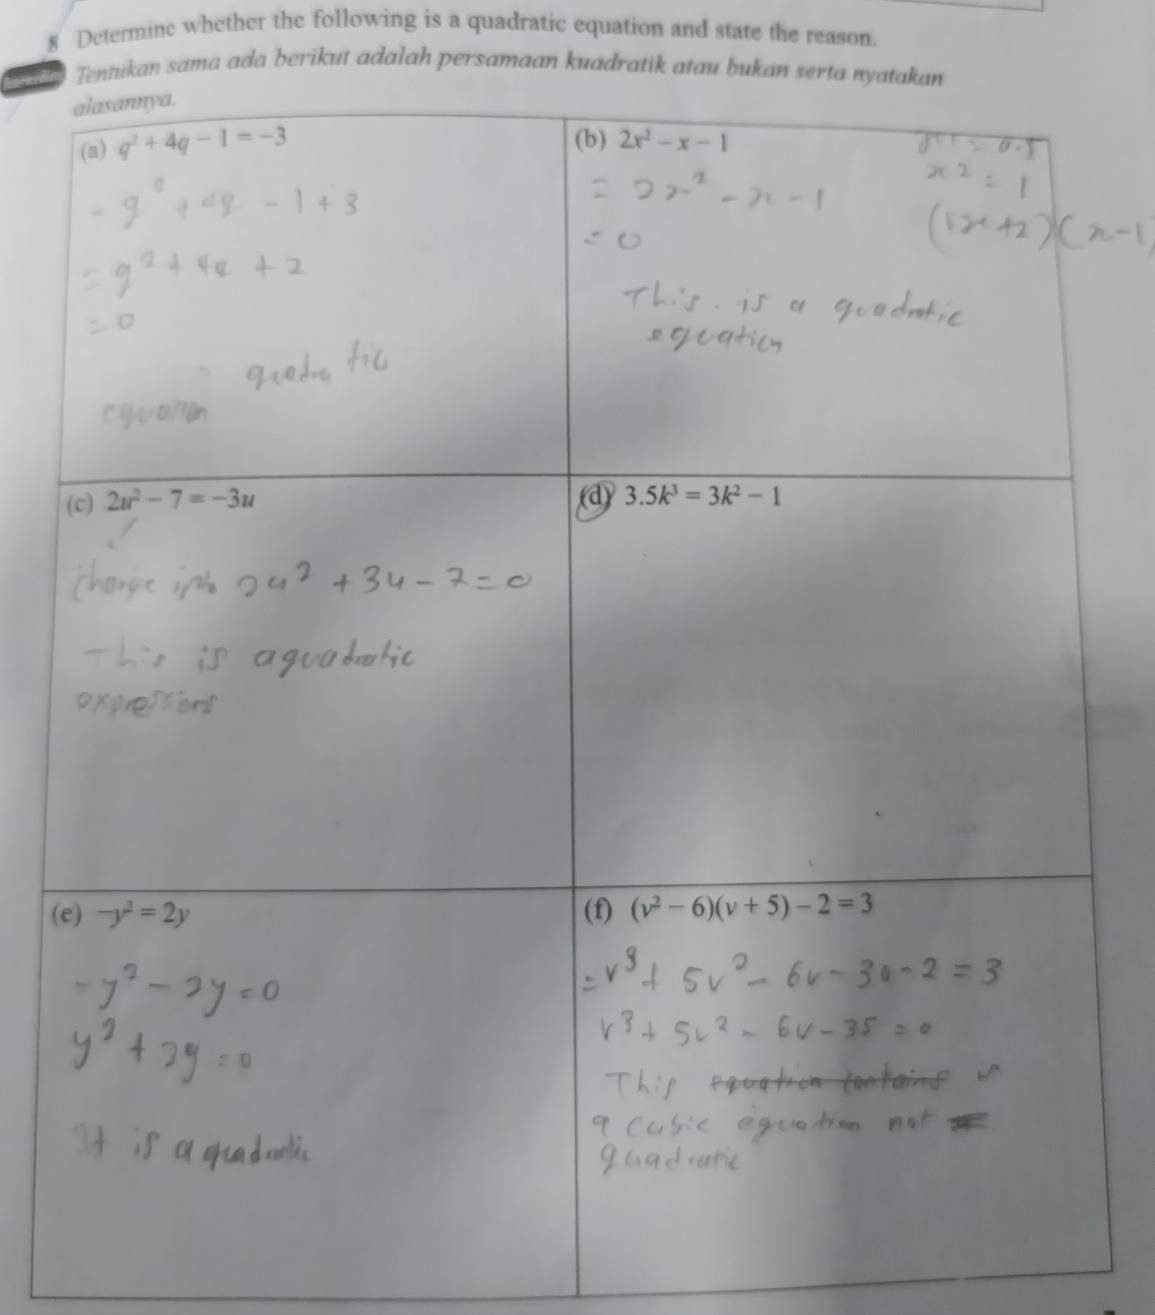 8 Determine whether the following is a quadratic equation and state the reason.
Tentukan sama ada berikut adalah persamaan kuadratik atau bukan serta nyatakan
alasannya.
(a) q² + 4q − 1 = −3
= q² + 4q - 1 + 3
= q² + 4q + 2
= 0
quadratic
(b) 2x² − x − 1
= 2x² - x - 1
= 0
= 0.5
x2 = 1
(1x+2)(x-1)
This is a quadratic
equation
(c) 2u² − 7 = −3u
2u² + 3u - 7 = 0
This is a quadratic
expressions
(d) 3.5k³ = 3k² − 1
(e) −y² = 2y
-y² - 2y = 0
y² + 2y = 0
It is a quadratic
(f) (v² − 6)(v + 5) − 2 = 3
= v³ + 5v² - 6v - 30 - 2 = 3
v³ + 5v² - 6v - 35 = 0
This equation contains is
a cubic equation not
quadratic